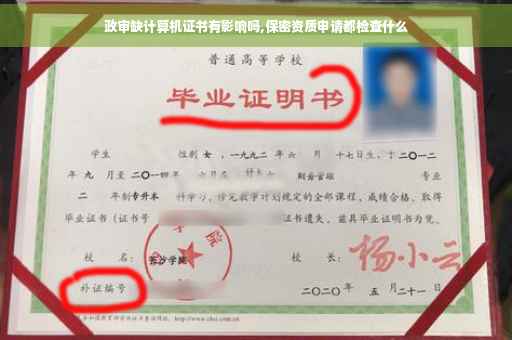 政审缺计算机证书有影响吗,保密资质申请都检查什么
普通高等学校
毕业证明书
学生 性别 女 ，一九九二 年 六 月 十七日生，于 二〇一二
年 九 月至 二〇一四 年 六月在
专业
二 年制 专升本 科学习，修完教学计划规定的全部课程，成绩合格，取得
毕业证书（证书号 证书遗失，兹具毕业证明书为凭。
校 名： 长沙学院 校 长： 杨小云
补证编号 二〇二〇年 五 月 二十一日